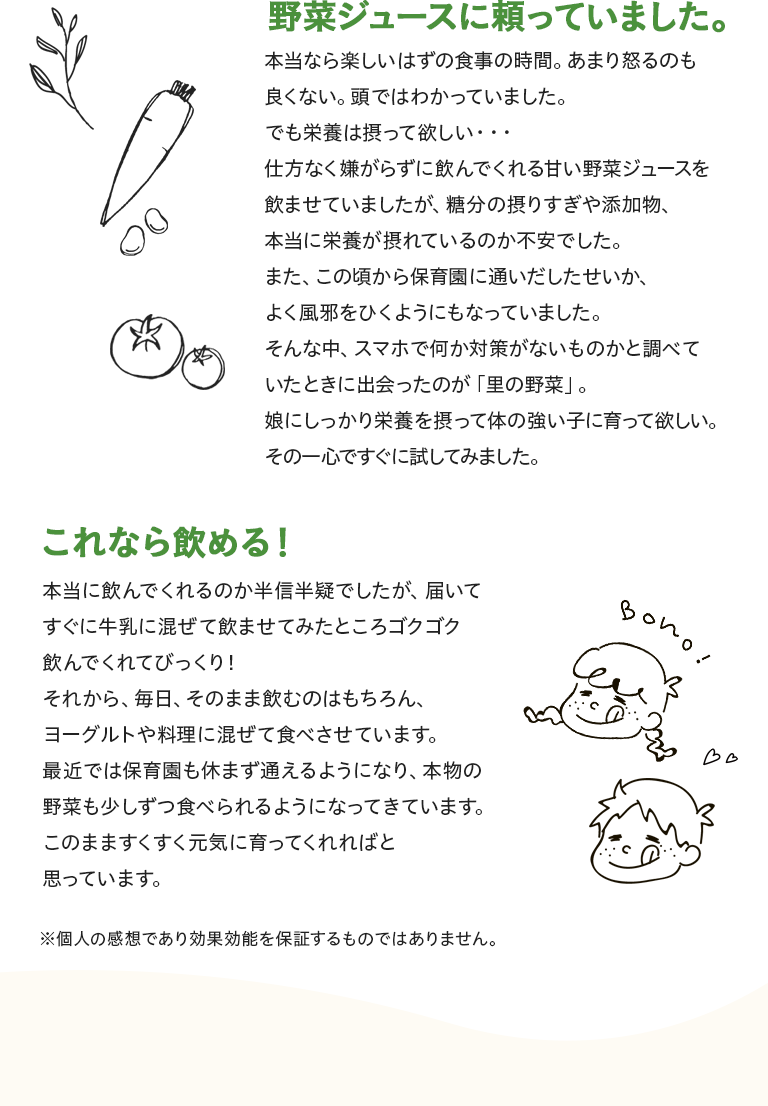 野菜ジュースに頼っていました。
本当なら楽しいはずの食事の時間。あまり怒るのも
良くない。頭ではわかっていました。
でも栄養は摂って欲しい・・・
仕方なく嫌がらずに飲んでくれる甘い野菜ジュースを
飲ませていましたが、糖分の摂りすぎや添加物、
本当に栄養が摂れているのか不安でした。
また、この頃から保育園に通いだしたせいか、
よく風邪をひくようにもなっていました。
そんな中、スマホで何か対策がないものかと調べて
いたときに出会ったのが「里の野菜」。
娘にしっかり栄養を摂って体の強い子に育って欲しい。
その一心ですぐに試してみました。
これなら飲める！
本当に飲んでくれるのか半信半疑でしたが、届いて
すぐに牛乳に混ぜて飲ませてみたところゴクゴク
飲んでくれてびっくり！
それから、毎日、そのまま飲むのはもちろん、
ヨーグルトや料理に混ぜて食べさせています。
最近では保育園も休まず通えるようになり、本物の
野菜も少しずつ食べられるようになってきています。
このまますくすく元気に育ってくれればと
思っています。
Bono!
※個人の感想であり効果効能を保証するものではありません。